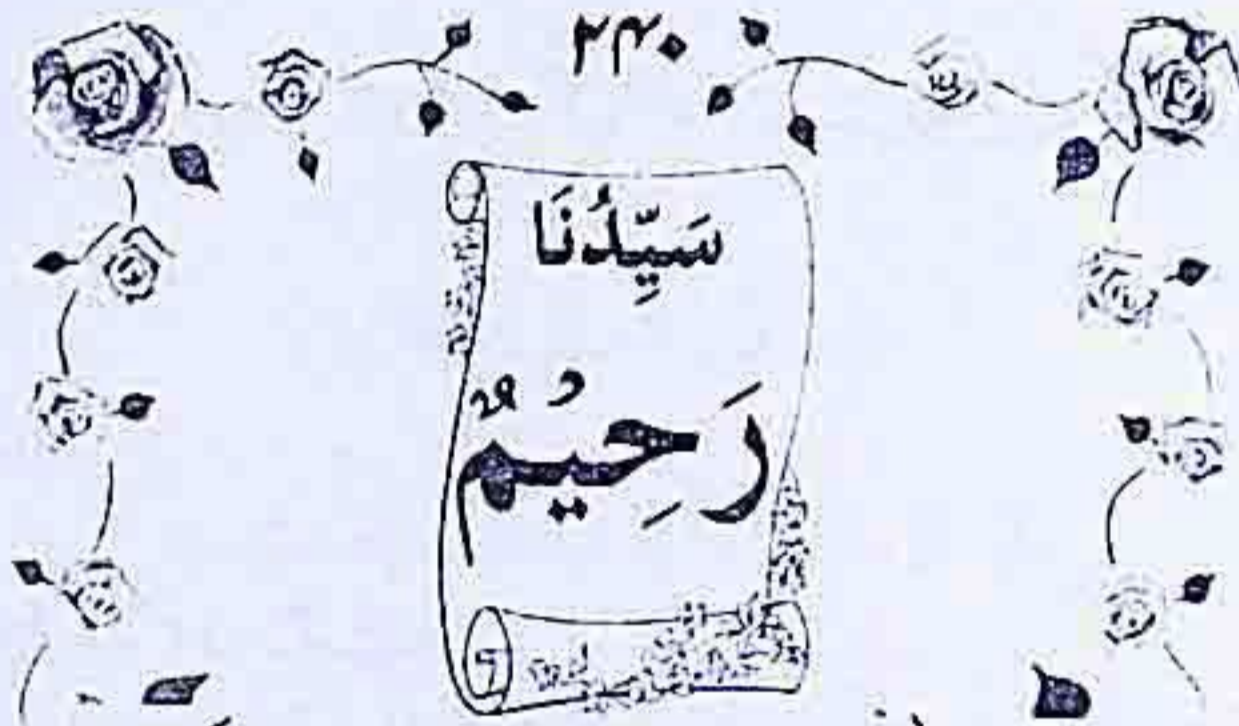 ۲۴۰
سَيِّدُنَا
رَحِيْمٌ